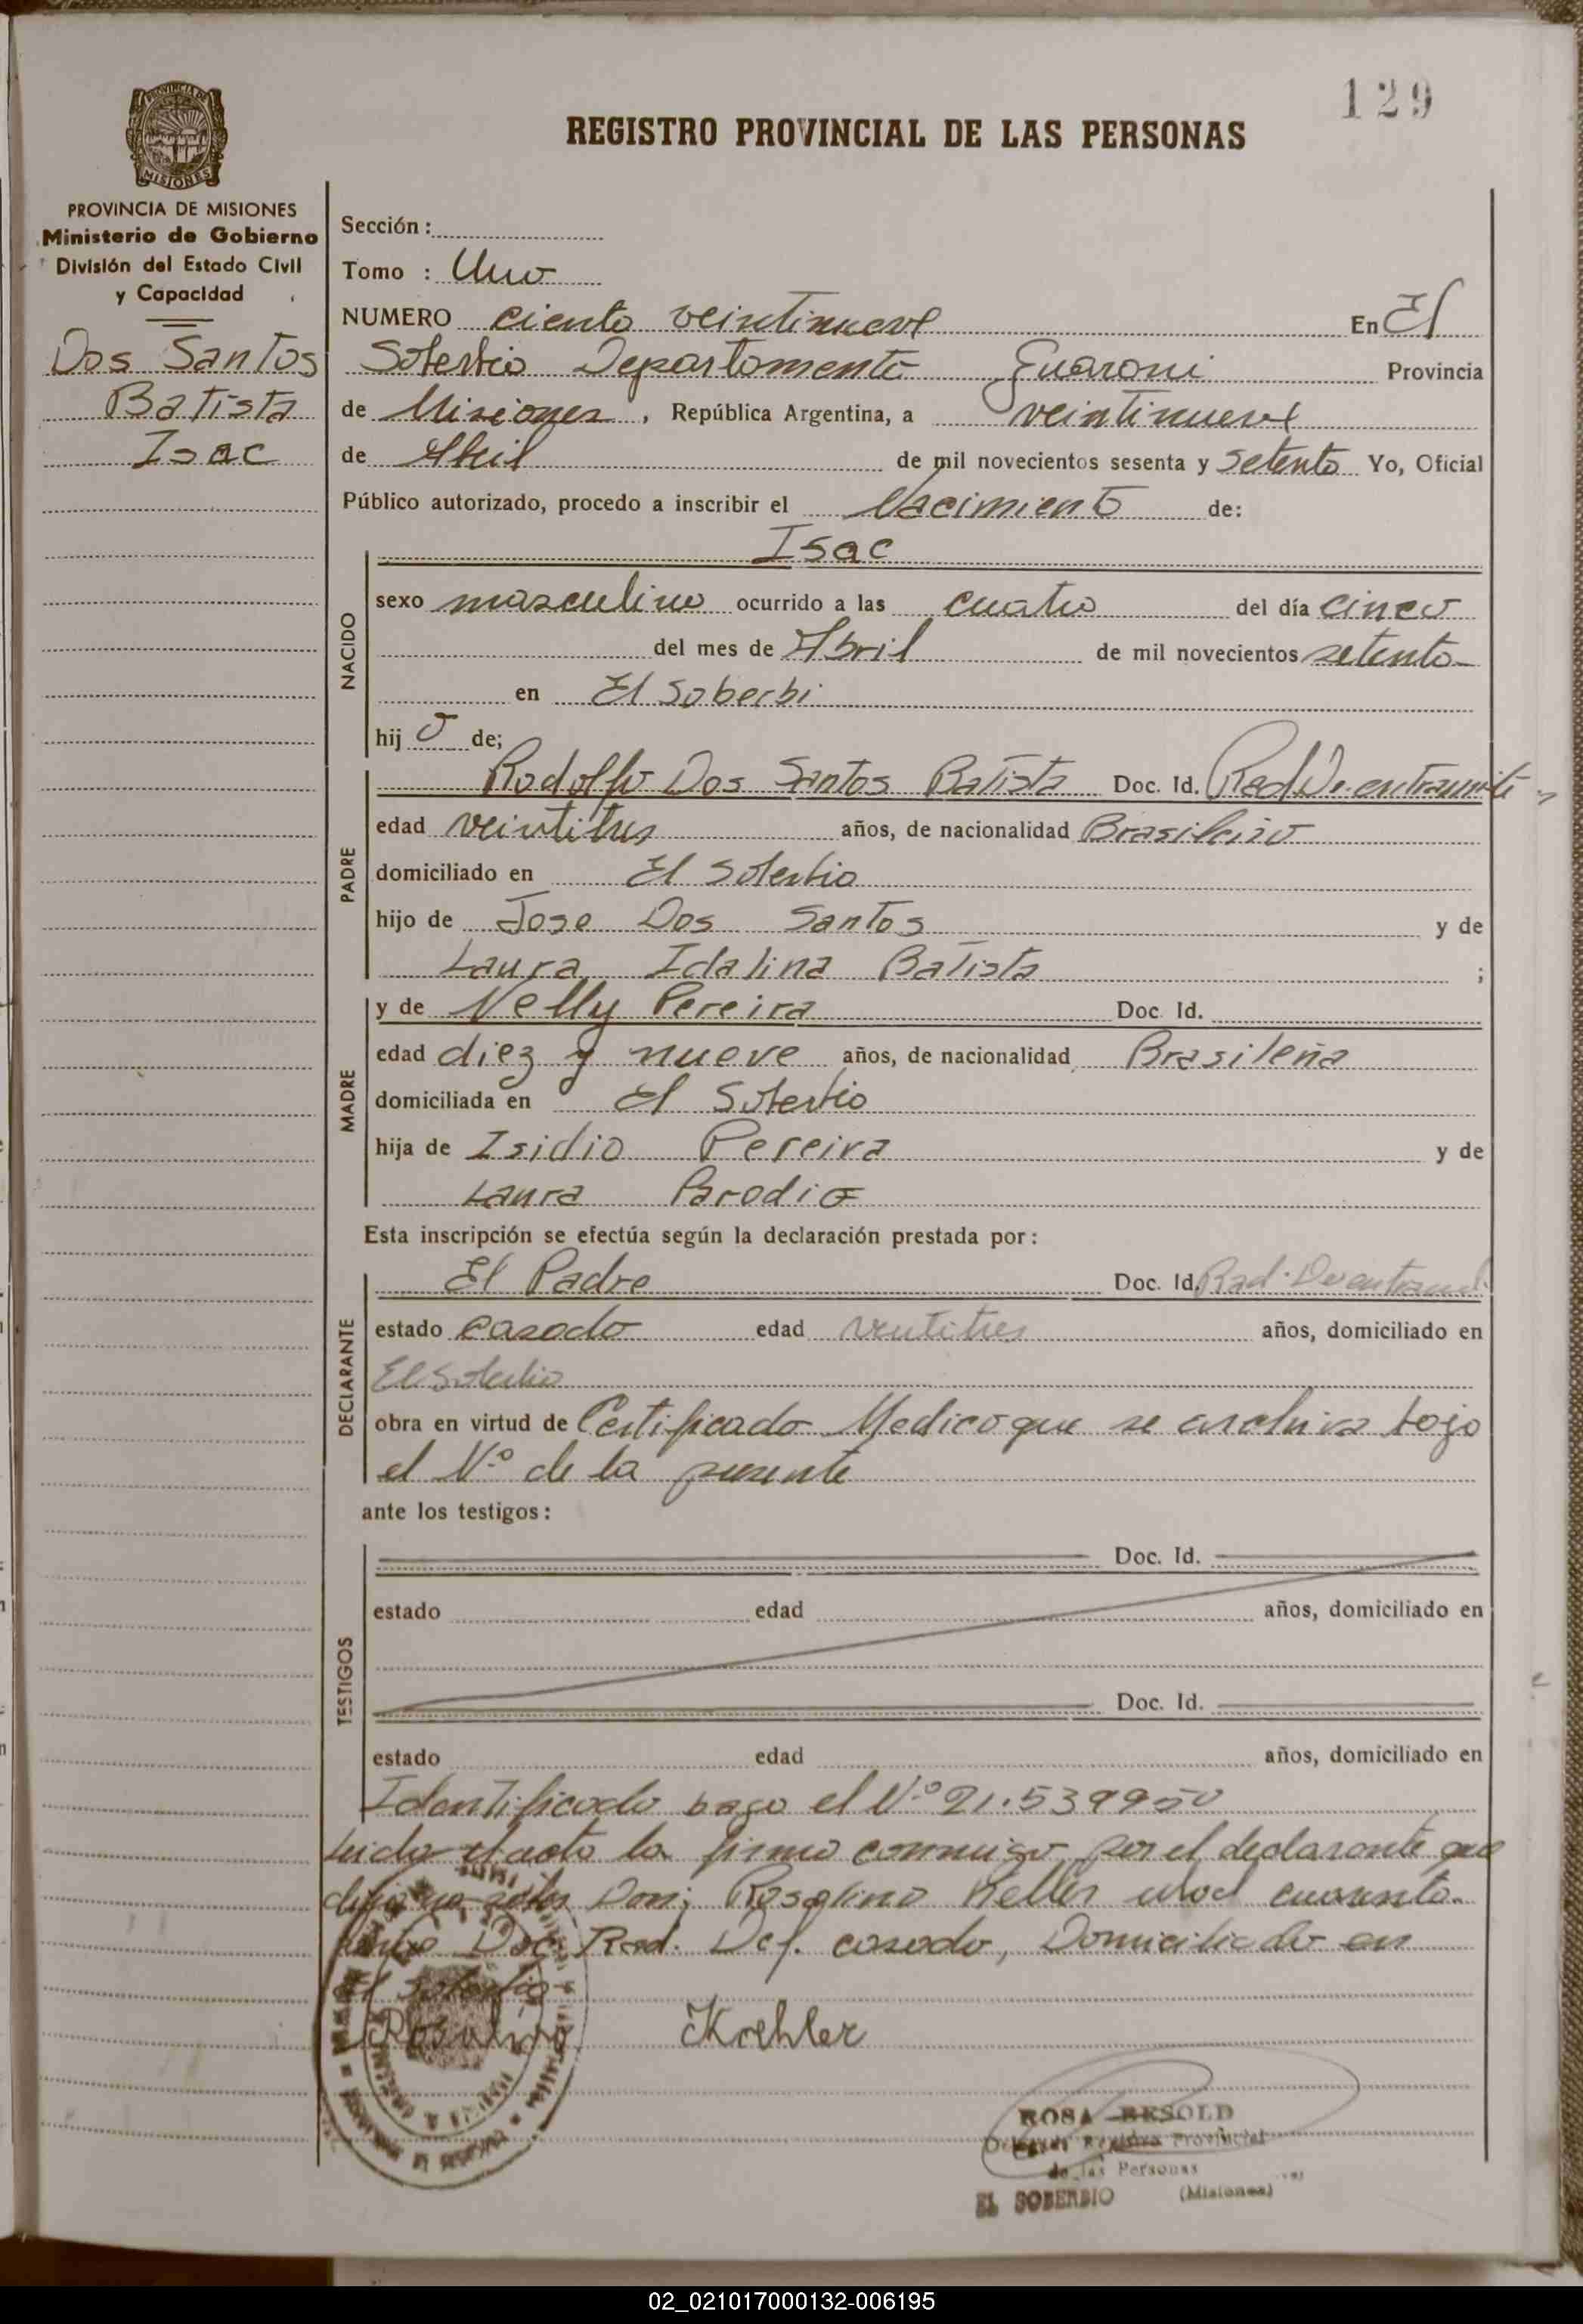 129
REGISTRO PROVINCIAL DE LAS PERSONAS
PROVINCIA DE MISIONES
MISIONES
PROVINCIA DE MISIONES
Ministerio de Gobierno
División del Estado Civil
y Capacidad
Dos Santos
Batista
Isac
Sección :
Tomo : Uno
NUMERO ciento veintinueve En El
Soberbio Departamento Guarani Provincia
de Misiones , República Argentina, a veintinueve
de Abril de mil novecientos sesenta y setenta Yo, Oficial
Público autorizado, procedo a inscribir el Nacimiento de:
Isac
NACIDO
sexo masculino ocurrido a las cuatro del día cinco
del mes de Abril de mil novecientos setenta
en El Soberbi
hij o de;
PADRE
Rodolfo Dos Santos Batista Doc. Id. Rad. De. entramite
edad veintitres años, de nacionalidad Brasileño
domiciliado en El Soberbio
hijo de Jose Dos Santos y de
Laura Idalina Batista ;
MADRE
y de Nelly Pereira Doc. Id.
edad diez y nueve años, de nacionalidad Brasileña
domiciliada en El Soberbio
hija de Isidio Pereira y de
Laura
Esta inscripción se efectúa según la declaración prestada por :
DECLARANTE
El Padre Doc. Id. Rad.
estado casado edad años, domiciliado en
El Soberbio
obra en virtud de Certificado Medico que se archiva bajo
el Nº de la presente
ante los testigos :
TESTIGOS
Doc. Id.
estado edad años, domiciliado en
Doc. Id.
estado edad años, domiciliado en
Identificado bajo el Nº 21.539950
Leida el acta la firma conmigo por el declarante que
dijo no saber Don; Rosalino Keller edad cuarenta
Doc. Rad. Def. casado, Domiciliado en
El Soberbio
Rosalino Koehler
ROSA BESOLD
Registro Provincial
de las Personas
EL SOBERBIO (Misiones)
02_021017000132-006195